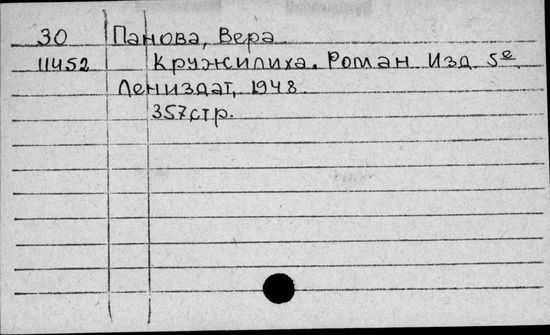 30 Панова, Вера
11452 Кружилиха. Роман Изд. 5е
Лениздат, 1948.
357 стр.